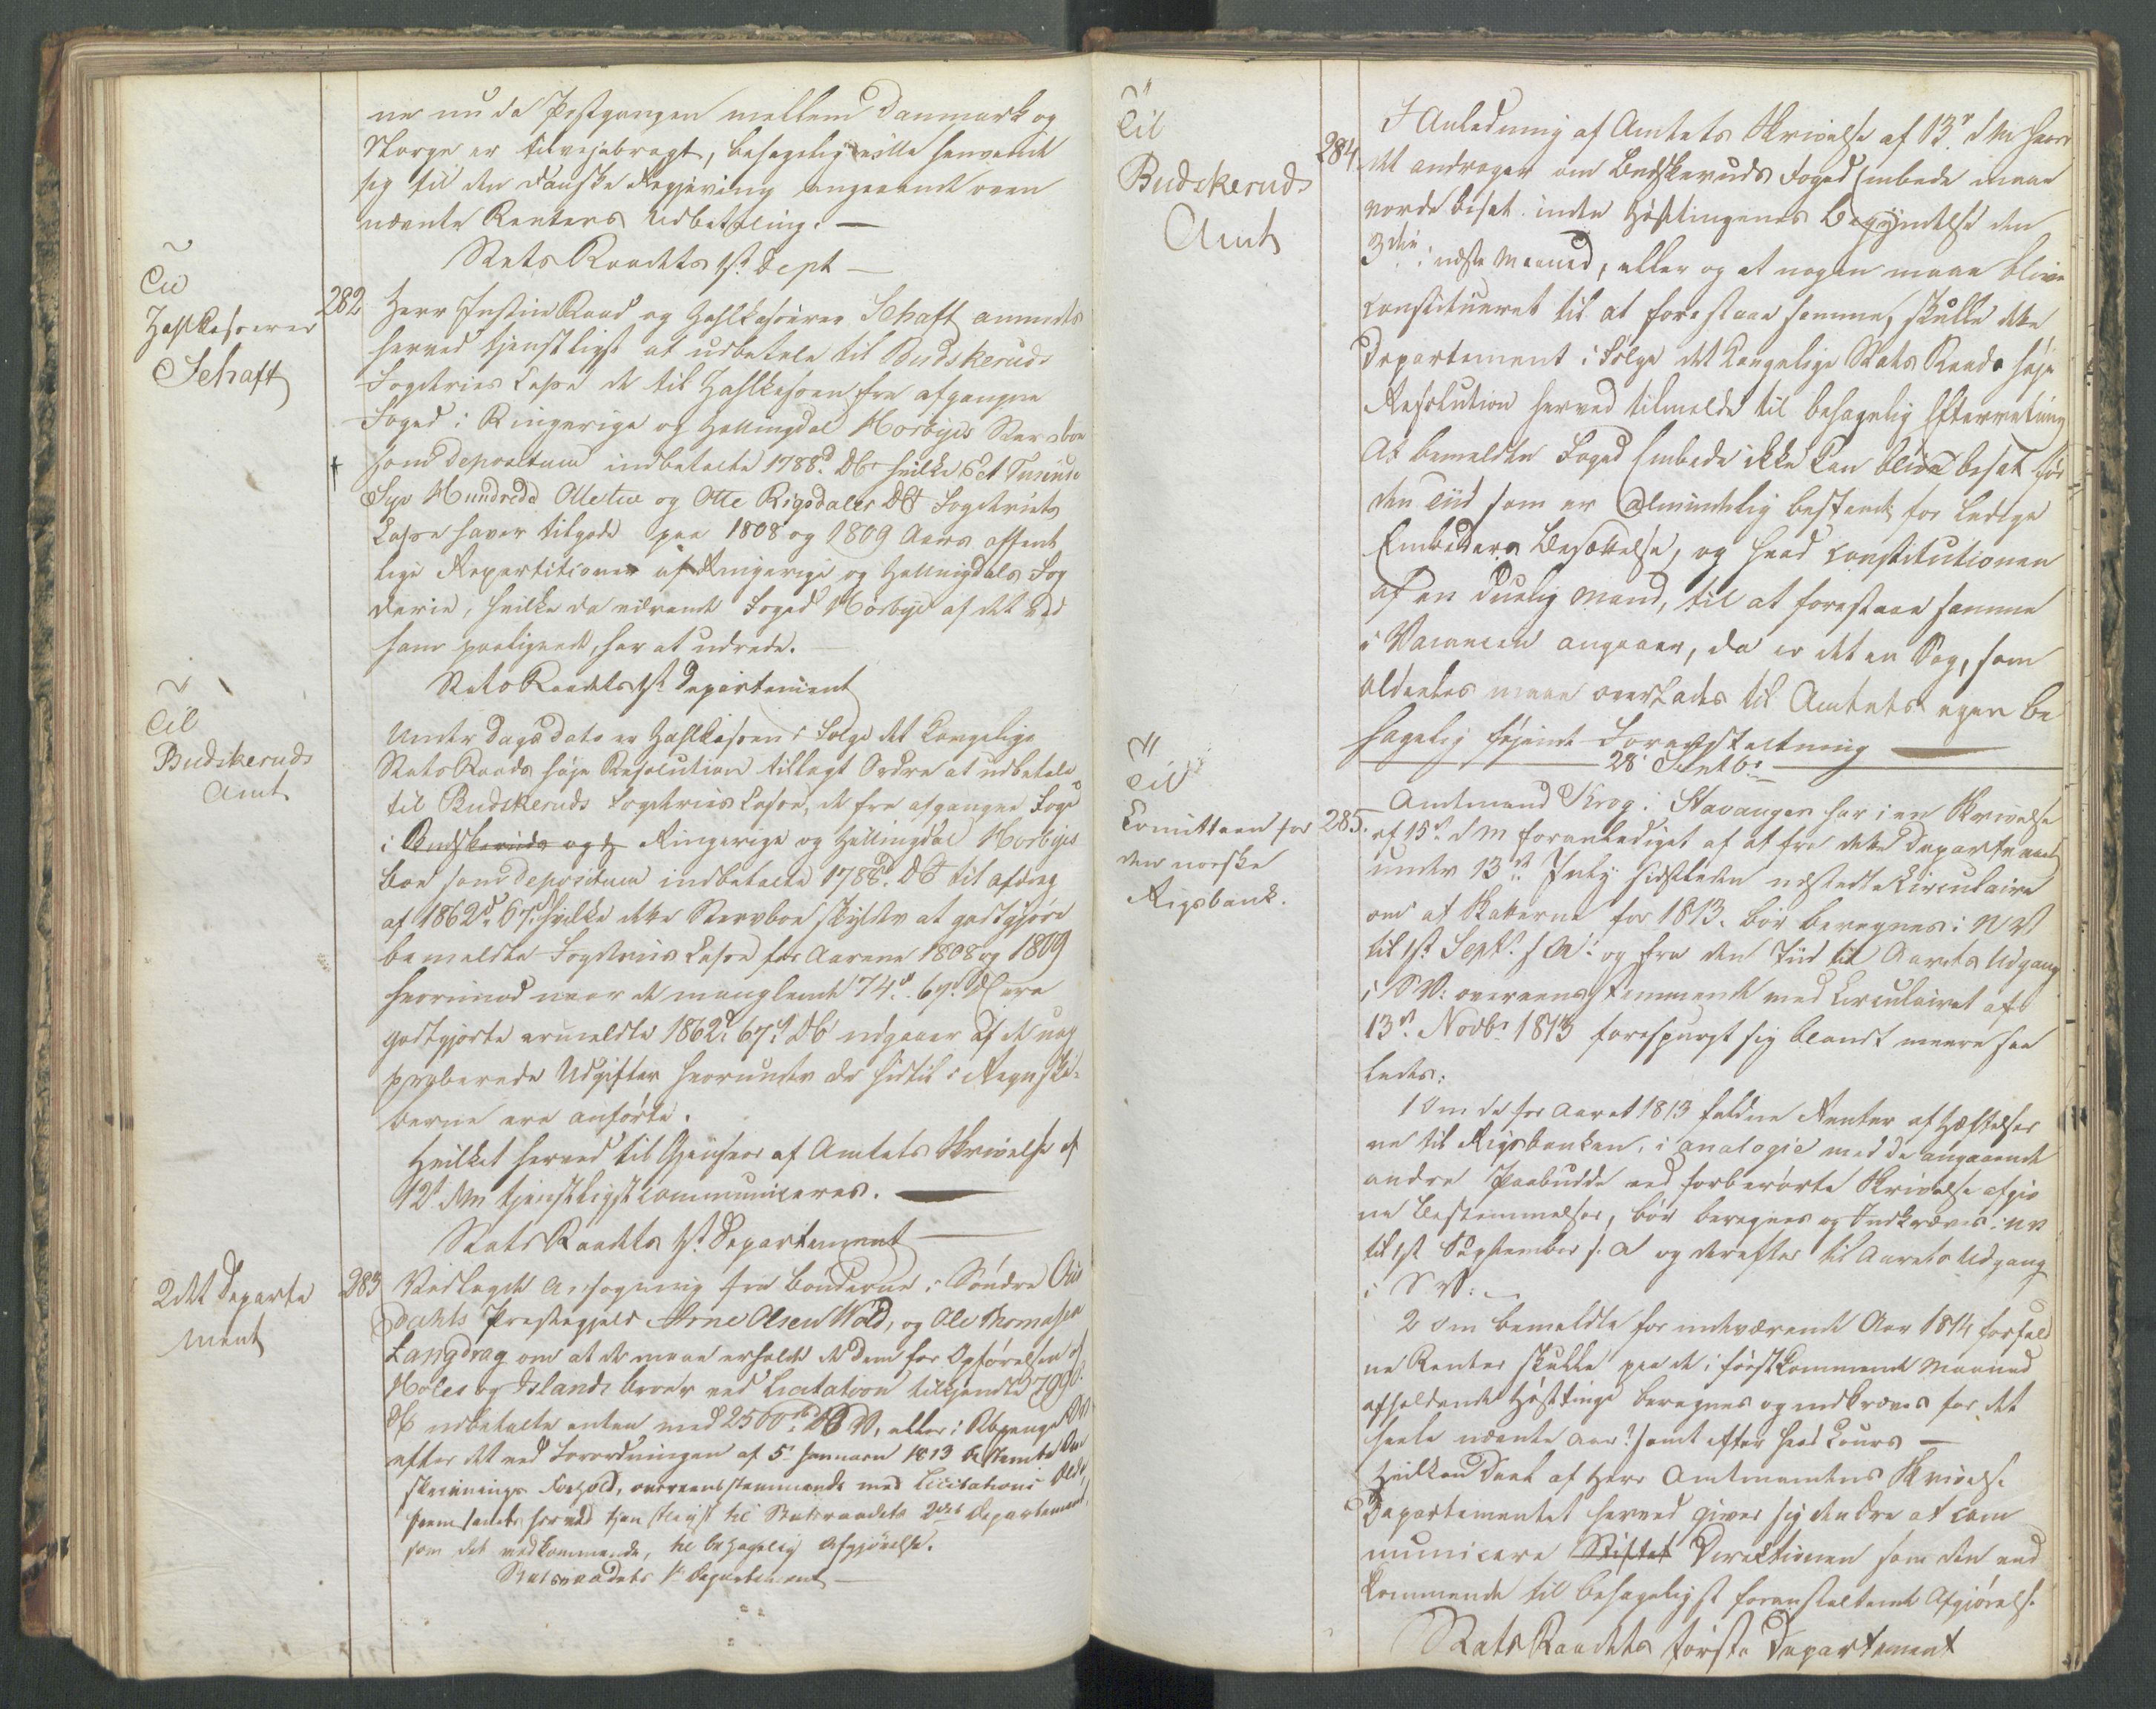 ne nu da Postgangen mellem Danmark og
Norge er tilvejebragt, behagelig ville henvende
sig til den danske Regjering angaaende oven
nævnte Renters Udbetaling. —
Stats Raadets 1ste Dept —
Til
Zahlkasserer
Schaft
282 Herr Justice Raad og Zahlkasserer Schaft anmodes
herved tjenstligst at udbetale til Budskeruds
Fogderies Casse de til Zahlkassen fra afgangne
Foged i Ringerige og Hallingdal Horbyes Sterboe
som depositum indbetalte 1788 d. DC hvilke Et Tusinde
Syv Hundrede Otteti og Otte Rigsdaler DC Fogderiets
Casse haver tilgode paa 1808 og 1809 Aars offent
lige Repartitioner af Ringerige og Hallingdals Fog
derie, hvilke da værende Foged Horbye af det ved
ham paalignede, har at udrede.
Stats Raadets 1ste Departement
Til
Budskeruds
Amt
Under Dags Dato er Zahlkassen i Følge det Kongelige
Stats Raads høje Resolution tillagt Ordre at udbetale
til Budskeruds Fogderies Casse, de fra afgangne Foged
i Budskeruds og Ringerige og Hallingdal Horbyes
Boe som depositum indbetalte 1788 d. DC til afdrag
af 1862 d. 67 s. hvilke dette Stervboe skylder at godtgjøre
bemeldte Fogderies Casse for Aarene 1808 og 1809
hvorimod naar de manglende 74 d. 67 s. DC ere
godtgjorte ermeldte 1862 d. 67 s. DC udgaaer af de uap
proberede Udgifter hvorunder de hidtil i Regnska-
berne ere anførte.
Hvilket herved til Gjensvar af Amtets Skrivelse af
12 d. M tjenstligst communiceres. —
Stats Raadets 1ste Departement —
2det Departe
ment
283 Vedlagte Ansøgning fra Bønderne i Søndre Aur
dahls Præstegjeld Arne Olsen Wold, og Ole Thomassen
Langdrag om at de maae erholde de dem for Opførelsen af
Holes og Islands Broer ved Licitation tilkjendte
udbetalte enten med 2500 eller i Rbpenge
efter det ved Forordningen af 5 Januari 1813 bestemte
skrivnings Forhold, overeensstemmende med Licitations
fremsendes herved tjenstligst til Statsraadets 2det Departement,
som det vedkommende, til behagelig Afgjørelse.
Statsraadets 1ste Departement —
Til
Budskeruds
Amt
284. I Anledning af Amtets Skrivelse af 13 d. M. hvori
det andrager om Budskeruds Foged Embede maae
vorde besat inden Høsttingenes Begyndelse den
3die i næste Maaned, eller og at nogen maae blive
constitueret til at forestaae samme, skulle dette
Departement i Følge det Kongelige Stats Raads høje
Resolution herved tilmelde til behagelig Efterretning
At bemeldte Foged Embede ikke kan blive besat før
den Tiid som er almindelig bestemt for ledige
Embeders Besættelse, og hvad Constitutionen
af en duelig Mand, til at forestaae samme
i Vacancen angaaer, da er det en Sag, som
aldeeles maae overlades til Amtets egen be
hagelig føjende Foranstaltning —
28 Septbr
Til
Comitteen for
den norske
Rigsbank.
285. Amtmand Krog i Stavanger har i en Skrivelse
af 15 d. M foranlediget af at fra dette Departement
under 13de July sidstleden udstedte Circulaire
om at Skatterne for 1813. bør beregnes i NV
til 1ste Septr. s. A. og fra den Tiid til Aarets Udgang
i SV: overeensstemmende med Circulairet af
13 Novbr 1813 forespurgt sig blandt meere saa
ledes:
1 Om de for Aaret 1813 faldne Renter af Hæftelser
ne til Rigsbanken, i analogie med de angaaende
andre Paabudde ved forberørte Skrivelse afgiv
ne Bestemmelser, bør beregnes og Indkræves i NV
til 1ste September s. A og derefter til Aarets Udgang
i SV: —
2 Om bemeldte for indeværende Aar 1814 forfald
ne Renter skulle paa de i førstkommende Maaned
afholdende Høsttinge beregnes og indkræves for det
heele nævnte Aar? samt efter hvad Cours —
Hvilken Deel af Herr Amtmandens Skrivelse
Departementet herved giver sig den Ære at com
municere Stiftet Direktionen som den ved
kommende til behageligst foranstaltende Afgjørelse
Stats Raadets første Departement